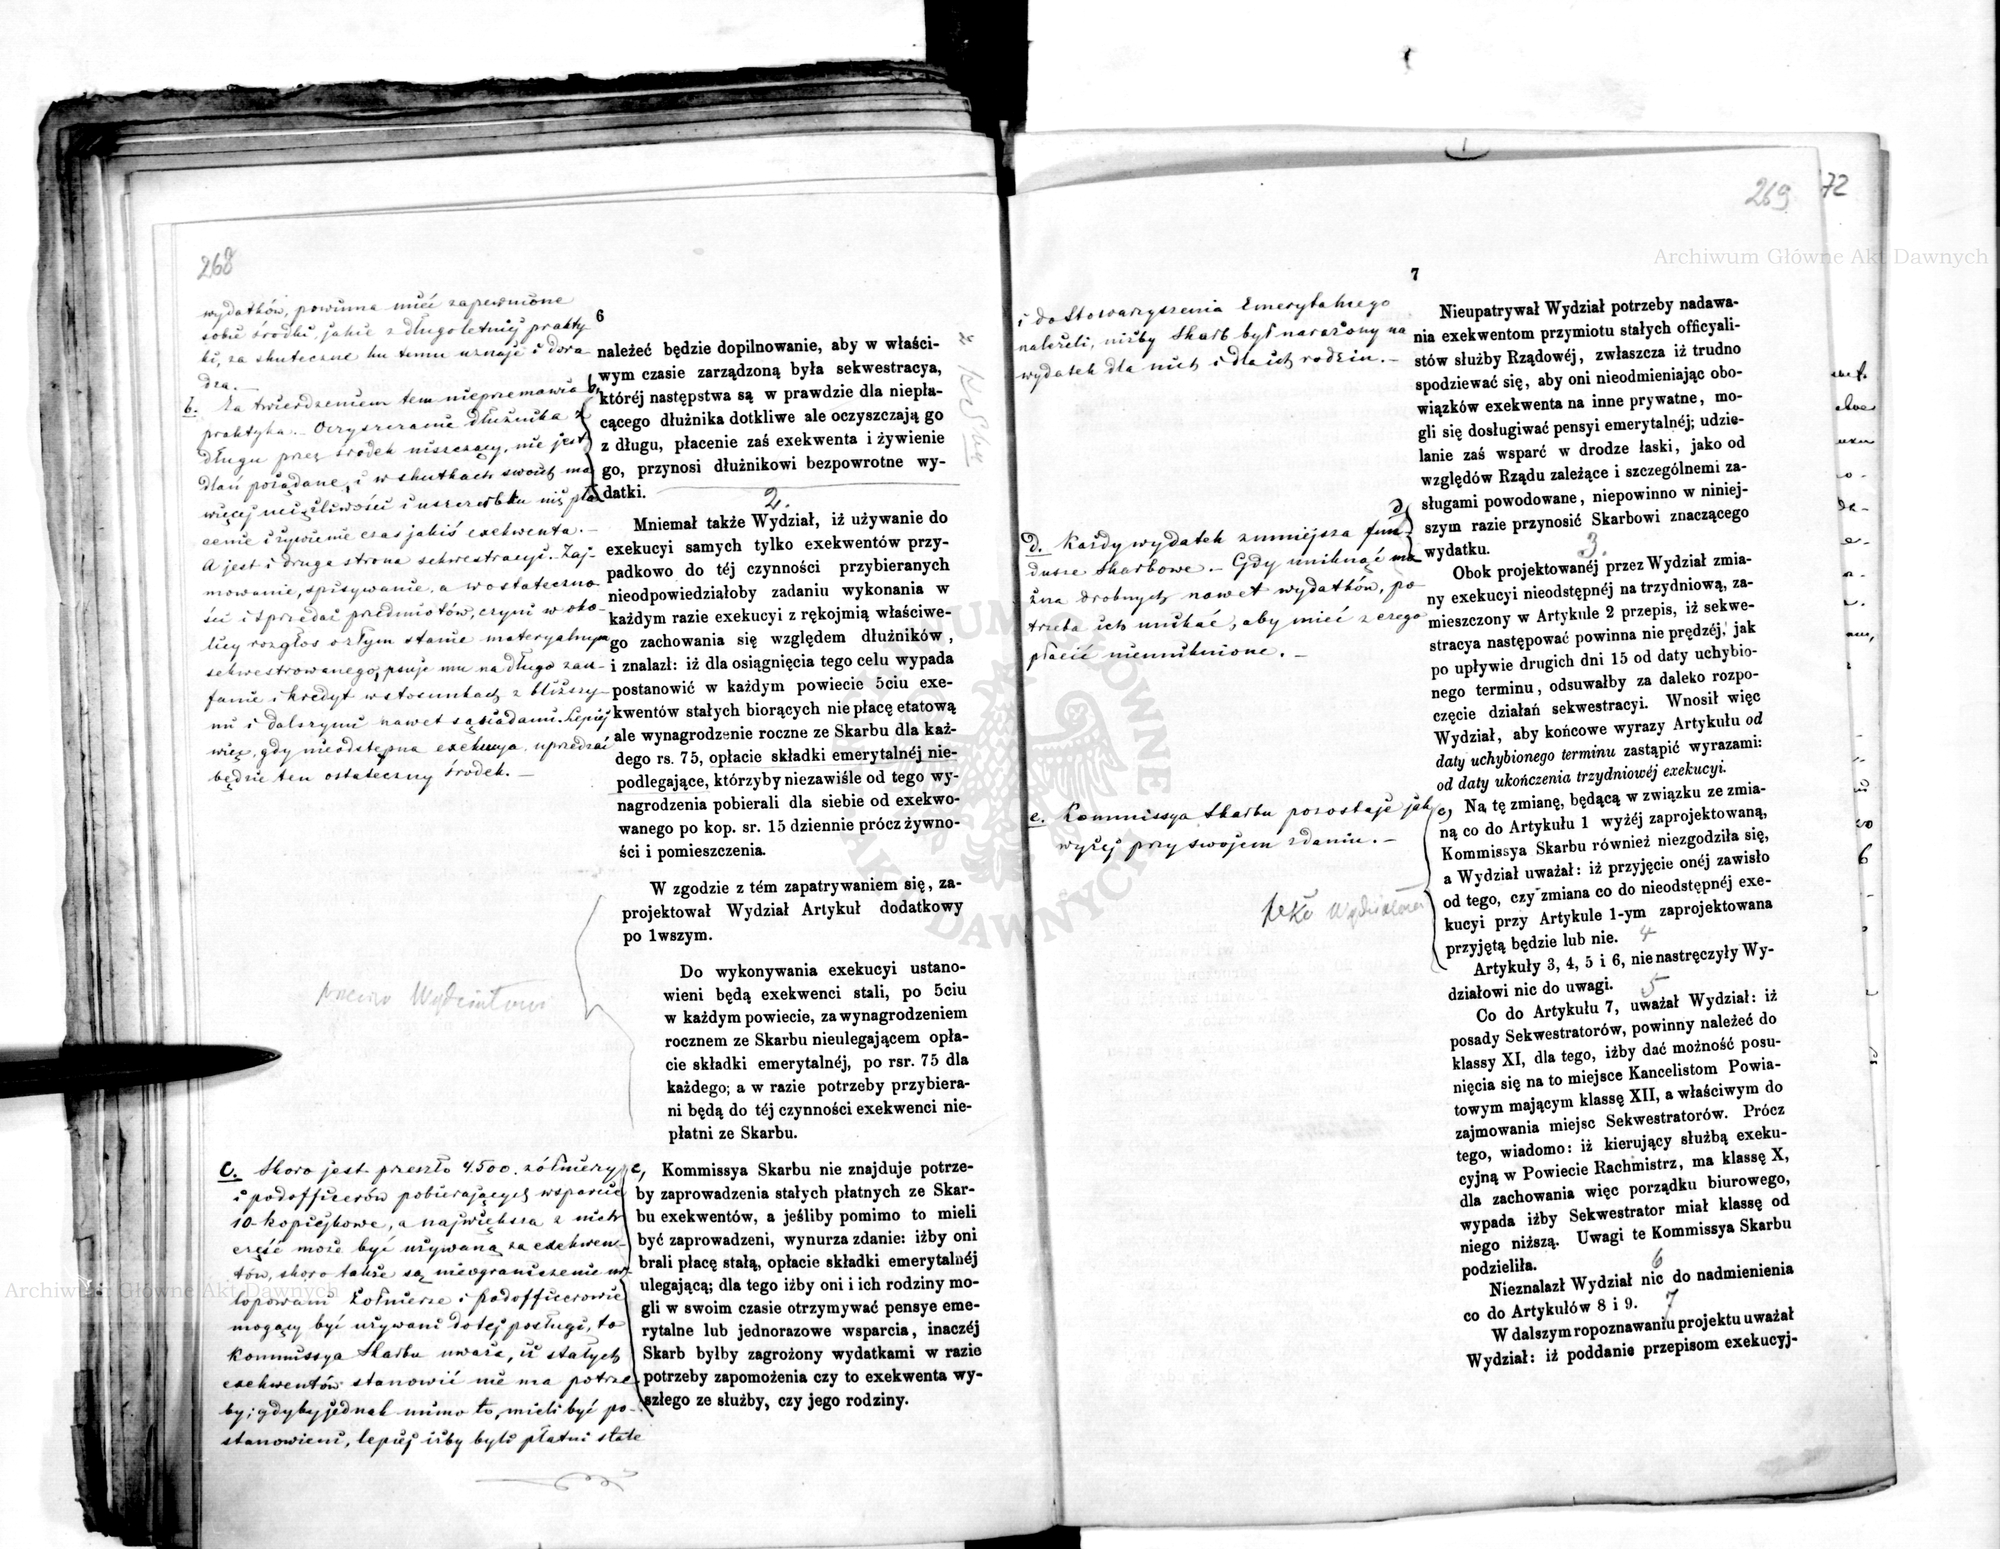 268
wydatków, powinna mieć zapewnione
sobie środki, jakie z długoletniej prakty-
ki, za skuteczne ku temu uznaje i dora-
dza. —
b. Za twierdzeniem tem nieprzemawia
praktyka. — Oczyszczanie dłużnika z
długu przez środek niszczący, nie jest
dlań pożądane, i w skutkach swoich ma
więcej uciążliwości i uszczerbku niż pła-
cenie i żywienie czas jakiś exekwenta. —
A jest i druga strona sekwestracyi. Zaj-
mowanie, spisywanie, a w ostateczno-
ści i sprzedaż przedmiotów, czyni w oko-
licy rozgłos o złym stanie materyalnym
sekwestrowanego, psuje mu na długo zau-
fanie i kredyt w stosunkach z bliższy-
mi i dalszymi nawet sąsiadami. Lepiej
więc, gdy nieodstępna exekucya uprzedzać
będzie ten ostateczny środek. —
Wydziałowi
c. Skoro jest przeszło 4.500. żołnierzy
i podofficerów pobierających wsparcie
10-kopiejkowe, a największa z nich
część może być używaną za exekwen-
tów, skoro także są nieograniczenie ur-
lopowani Żołnierze i podofficerowie
mogący być używani do tej posługi, to
Kommissya Skarbu uważa, iż stałych
exekwentów stanowić nie ma potrze-
by; gdyby jednak mimo to, mieli być po-
stanowieni, lepiej iżby byli płatni stale
6
b,
należeć będzie dopilnowanie, aby w właści-
wym czasie zarządzoną była sekwestracya,
której następstwa są w prawdzie dla niepła-
cącego dłużnika dotkliwe ale oczyszczają go
z długu, płacenie zaś exekwenta i żywienie
go, przynosi dłużnikowi bezpowrotne wy-
datki.
2.
Mniemał także Wydział, iż używanie do
exekucyi samych tylko exekwentów przy-
padkowo do téj czynności przybieranych
nieodpowiedziałoby zadaniu wykonania w
każdym razie exekucyi z rękojmią właściwe-
go zachowania się względem dłużników,
i znalazł: iż dla osiągnięcia tego celu wypada
postanowić w każdym powiecie 5ciu exe-
kwentów stałych biorących nie płacę etatową
ale wynagrodzenie roczne ze Skarbu dla każ-
dego rs. 75, opłacie składki emerytalnéj nie-
podlegające, którzyby niezawiśle od tego wy-
nagrodzenia pobierali dla siebie od exekwo-
wanego po kop. sr. 15 dziennie prócz żywno-
ści i pomieszczenia.
W zgodzie z tém zapatrywaniem się, za-
projektował Wydział Artykuł dodatkowy
po 1wszym.
Do wykonywania exekucyi ustano-
wieni będą exekwenci stali, po 5ciu
w każdym powiecie, za wynagrodzeniem
rocznem ze Skarbu nieulegającem opła-
cie składki emerytalnéj, po rsr. 75 dla
każdego; a w razie potrzeby przybiera-
ni będą do téj czynności exekwenci nie-
płatni ze Skarbu.
c, Kommissya Skarbu nie znajduje potrze-
by zaprowadzenia stałych płatnych ze Skar-
bu exekwentów, a jeśliby pomimo to mieli
być zaprowadzeni, wynurza zdanie: iżby oni
brali płacę stałą, opłacie składki emerytalnéj
ulegającą; dla tego iżby oni i ich rodziny mo-
gli w swoim czasie otrzymywać pensye eme-
rytalne lub jednorazowe wsparcia, inaczéj
Skarb byłby zagrożony wydatkami w razie
potrzeby zapomożenia czy to exekwenta wy-
szłego ze służby, czy jego rodziny.
269
72
i do Stowarzyszenia Emerytalnego
należeli, niżby Skarb był narażony na
wydatek dla nich i dla ich rodzin. —
d. Każdy wydatek zmniejsza fun-
dusze Skarbowe. — Gdy uniknąć mo-
żna drobnych nawet wydatków, po-
trzeba ich unikać, aby mieć z czego
płacić nieuniknione. —
e. Kommissya Skarbu pozostaje jak
wyżej przy swojem zdaniu. —
Wydziałowi
7
Nieupatrywał Wydział potrzeby nadawa-
nia exekwentom przymiotu stałych officyali-
stów służby Rządowéj, zwłaszcza iż trudno
spodziewać się, aby oni nieodmieniając obo-
wiązków exekwenta na inne prywatne, mo-
gli się dosługiwać pensyi emerytalnéj; udzie-
lanie zaś wsparć w drodze łaski, jako od
względów Rządu zależące i szczególnemi za-
d, sługami powodowane, niepowinno w niniej-
szym razie przynosić Skarbowi znaczącego
wydatku.
3.
Obok projektowanéj przez Wydział zmia-
ny exekucyi nieodstępnéj na trzydniową, za-
mieszczony w Artykule 2 przepis, iż sekwe-
stracya następować powinna nie prędzéj, jak
po upływie drugich dni 15 od daty uchybio-
nego terminu, odsuwałby za daleko rozpo-
częcie działań sekwestracyi. Wnosił więc
Wydział, aby końcowe wyrazy Artykułu od
daty uchybionego terminu zastąpić wyrazami:
od daty ukończenia trzydniowéj exekucyi.
e, Na tę zmianę, będącą w związku ze zmia-
ną co do Artykułu 1 wyżéj zaprojektowaną,
Kommissya Skarbu również niezgodziła się,
a Wydział uważał: iż przyjęcie onéj zawisło
od tego, czy zmiana co do nieodstępnéj exe-
kucyi przy Artykule 1-ym zaprojektowana
przyjętą będzie lub nie.
4
Artykuły 3, 4, 5 i 6, nie nastręczyły Wy-
działowi nic do uwagi.
5
Co do Artykułu 7, uważał Wydział: iż
posady Sekwestratorów, powinny należeć do
klassy XI, dla tego, iżby dać możność posu-
nięcia się na to miejsce Kancelistom Powia-
towym mającym klassę XII, a właściwym do
zajmowania miejsc Sekwestratorów. Prócz
tego, wiadomo: iż kierujący służbą exeku-
cyjną w Powiecie Rachmistrz, ma klassę X,
dla zachowania więc porządku biurowego,
wypada iżby Sekwestrator miał klassę od
niego niższą. Uwagi te Kommissya Skarbu
podzieliła.
6
Nieznalazł Wydział nic do nadmienienia
co do Artykułów 8 i 9.
7
W dalszym ropoznawaniu projektu uważał
Wydział: iż poddanie przepisom exekucyj-
Archiwum Główne Akt Dawnych
Archiwum Główne Akt Dawnych